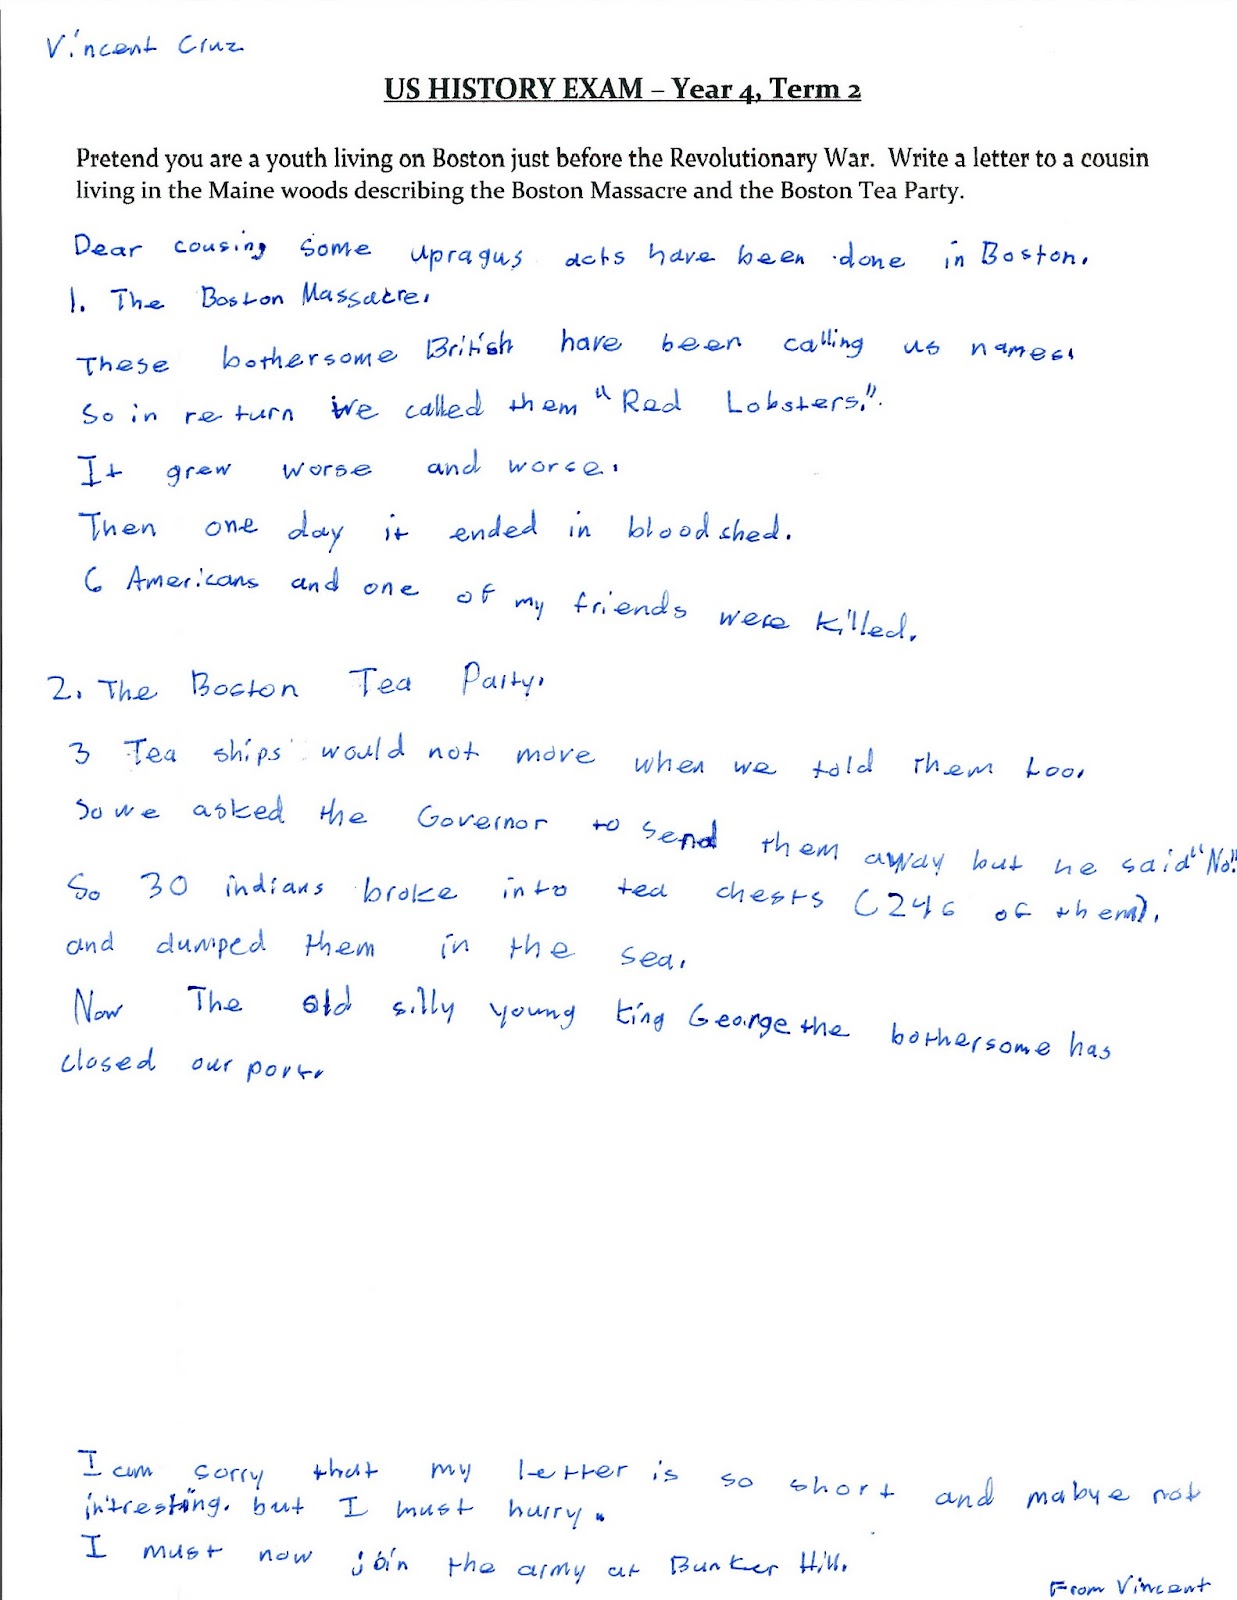 Vincent Cruz
US HISTORY EXAM – Year 4, Term 2
Pretend you are a youth living on Boston just before the Revolutionary War. Write a letter to a cousin
living in the Maine woods describing the Boston Massacre and the Boston Tea Party.
Dear cousing some upragus acts have been done in Boston.
1. The Boston Massacre.
These bothersome British have been calling us names.
So in return We called them "Red Lobsters."
It grew worse and worse.
Then one day it ended in bloodshed.
6 Americans and one of my friends were killed.
2. The Boston Tea Party.
3 Tea ships would not move when we told them too.
So we asked the Governor to send them away but he said "No".
So 30 indians broke into tea chests (246 of them).
and dumped them in the sea.
Now The old silly young king George the bothersome has
closed our port.
I am sorry that my letter is so short and mabye not
intresting. but I must hurry.
I must now join the army at Bunker Hill.
From Vincent